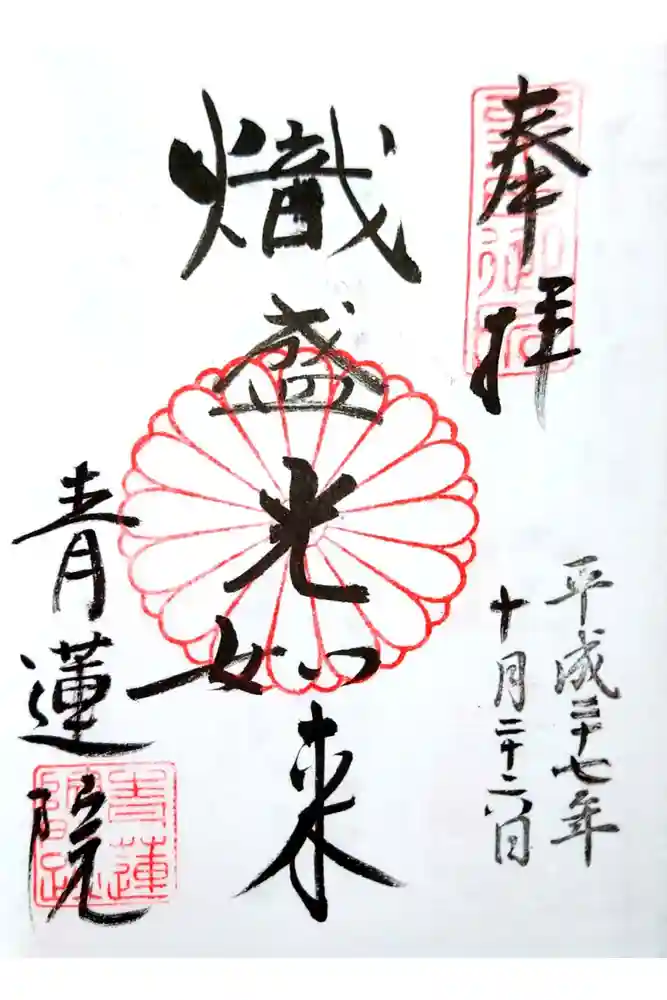 奉拝
平成二十七年
十月二十六日
熾盛光如来
青蓮院